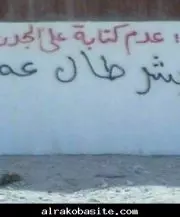 : عدم كتابة على الجدر
بشر طال عم
alrakobasite.com